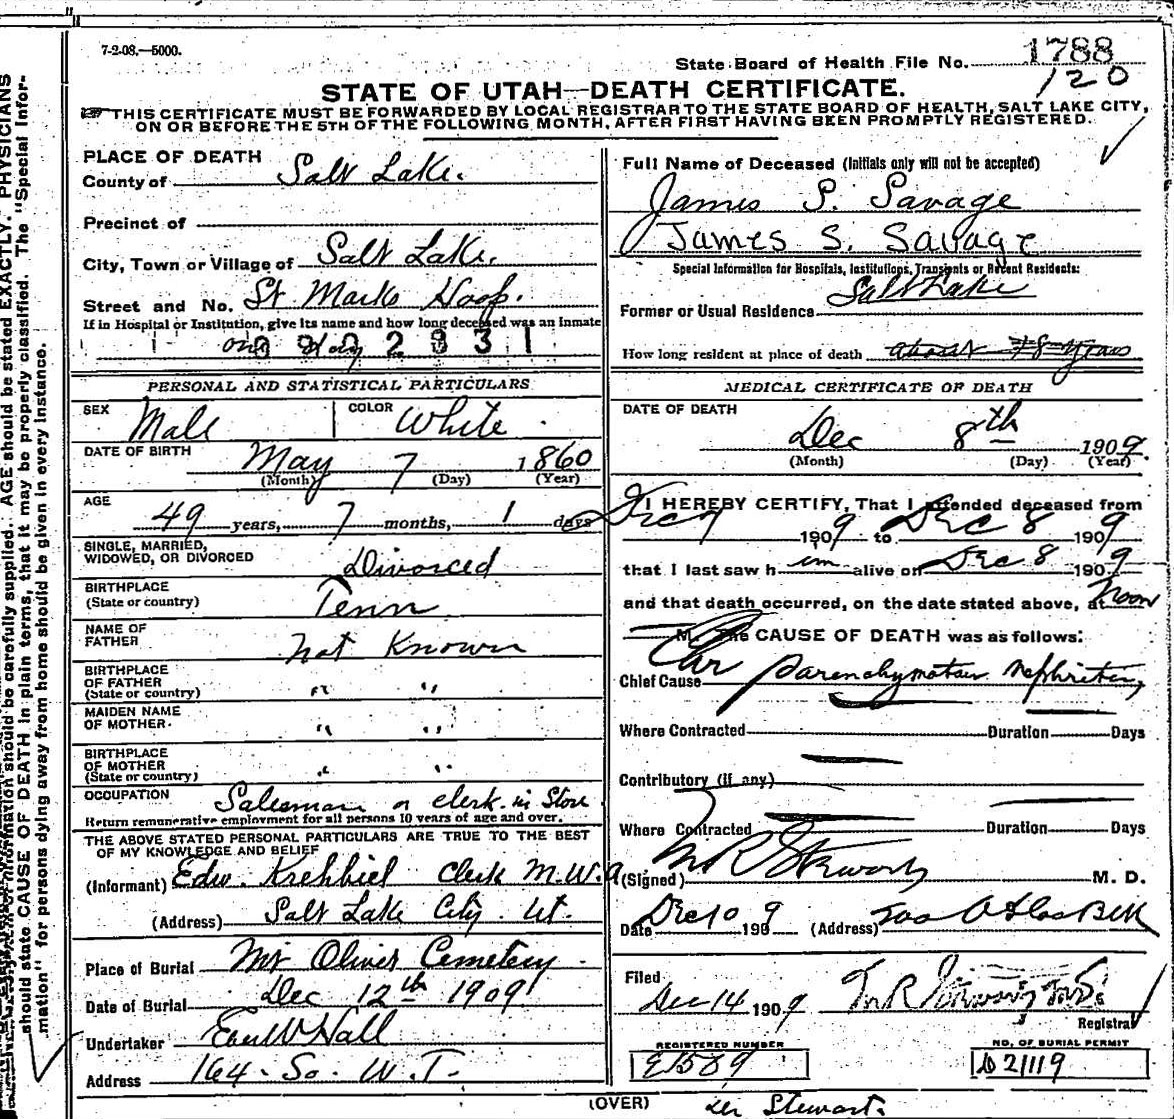 7-2-08.—5000.
State Board of Health File No. 1788
120
STATE OF UTAH—DEATH CERTIFICATE.
THIS CERTIFICATE MUST BE FORWARDED BY LOCAL REGISTRAR TO THE STATE BOARD OF HEALTH, SALT LAKE CITY,
ON OR BEFORE THE 5TH OF THE FOLLOWING MONTH, AFTER FIRST HAVING BEEN PROMPTLY REGISTERED.
PLACE OF DEATH
County of Salt Lake.
Precinct of
City, Town or Village of Salt Lake.
Street and No. St Marks Hosp.
If in Hospital or Institution, give its name and how long deceased was an inmate
one day
PERSONAL AND STATISTICAL PARTICULARS
SEX Male COLOR White
DATE OF BIRTH May 7 1860
(Month) (Day) (Year)
AGE 49 years, 7 months, 1 days
SINGLE, MARRIED,
WIDOWED, OR DIVORCED Divorced
BIRTHPLACE
(State or country) Tenn
NAME OF
FATHER Not Known
BIRTHPLACE
OF FATHER
(State or country) " "
MAIDEN NAME
OF MOTHER. " "
BIRTHPLACE
OF MOTHER
(State or country) " "
OCCUPATION Salesman or clerk in Store
Return remunerative employment for all persons 10 years of age and over.
THE ABOVE STATED PERSONAL PARTICULARS ARE TRUE TO THE BEST
OF MY KNOWLEDGE AND BELIEF
(Informant) Edw. Krehbiel Clerk M.W.A
(Address) Salt Lake City Ut.
Place of Burial Mt Olivet Cemetery
Date of Burial Dec 12th 1909
Undertaker Hall
Address 164 So. W. T.
Full Name of Deceased (Initials only will not be accepted)
James S. Savage
JAMES S. SAVAGE
Special Information for Hospitals, Institutions, Transients or Recent Residents:
Former or Usual Residence Salt Lake
How long resident at place of death about years
MEDICAL CERTIFICATE OF DEATH
DATE OF DEATH
Dec 8th 1909
(Month) (Day) (Year)
I HEREBY CERTIFY, That I attended deceased from
Dec 7 1909 to Dec 8 1909
that I last saw him alive on Dec 8 1909
and that death occurred, on the date stated above, at Noon
M. The CAUSE OF DEATH was as follows:
Chief Cause Chr parenchymatous Nephritis,
Where Contracted Duration Days
Contributory (if any)
Where Contracted Duration Days
(Signed) M. D.
Date Dec 10 1909 (Address)
Filed
Dec 14 1909
Registrar
REGISTERED NUMBER
E1589
NO. OF BURIAL PERMIT
D21119
(OVER) Stewart.
AGE should be stated EXACTLY. PHYSICIANS
should state CAUSE OF DEATH in plain terms, that it may be properly classified. The "Special Infor-
mation" for persons dying away from home should be given in every instance.